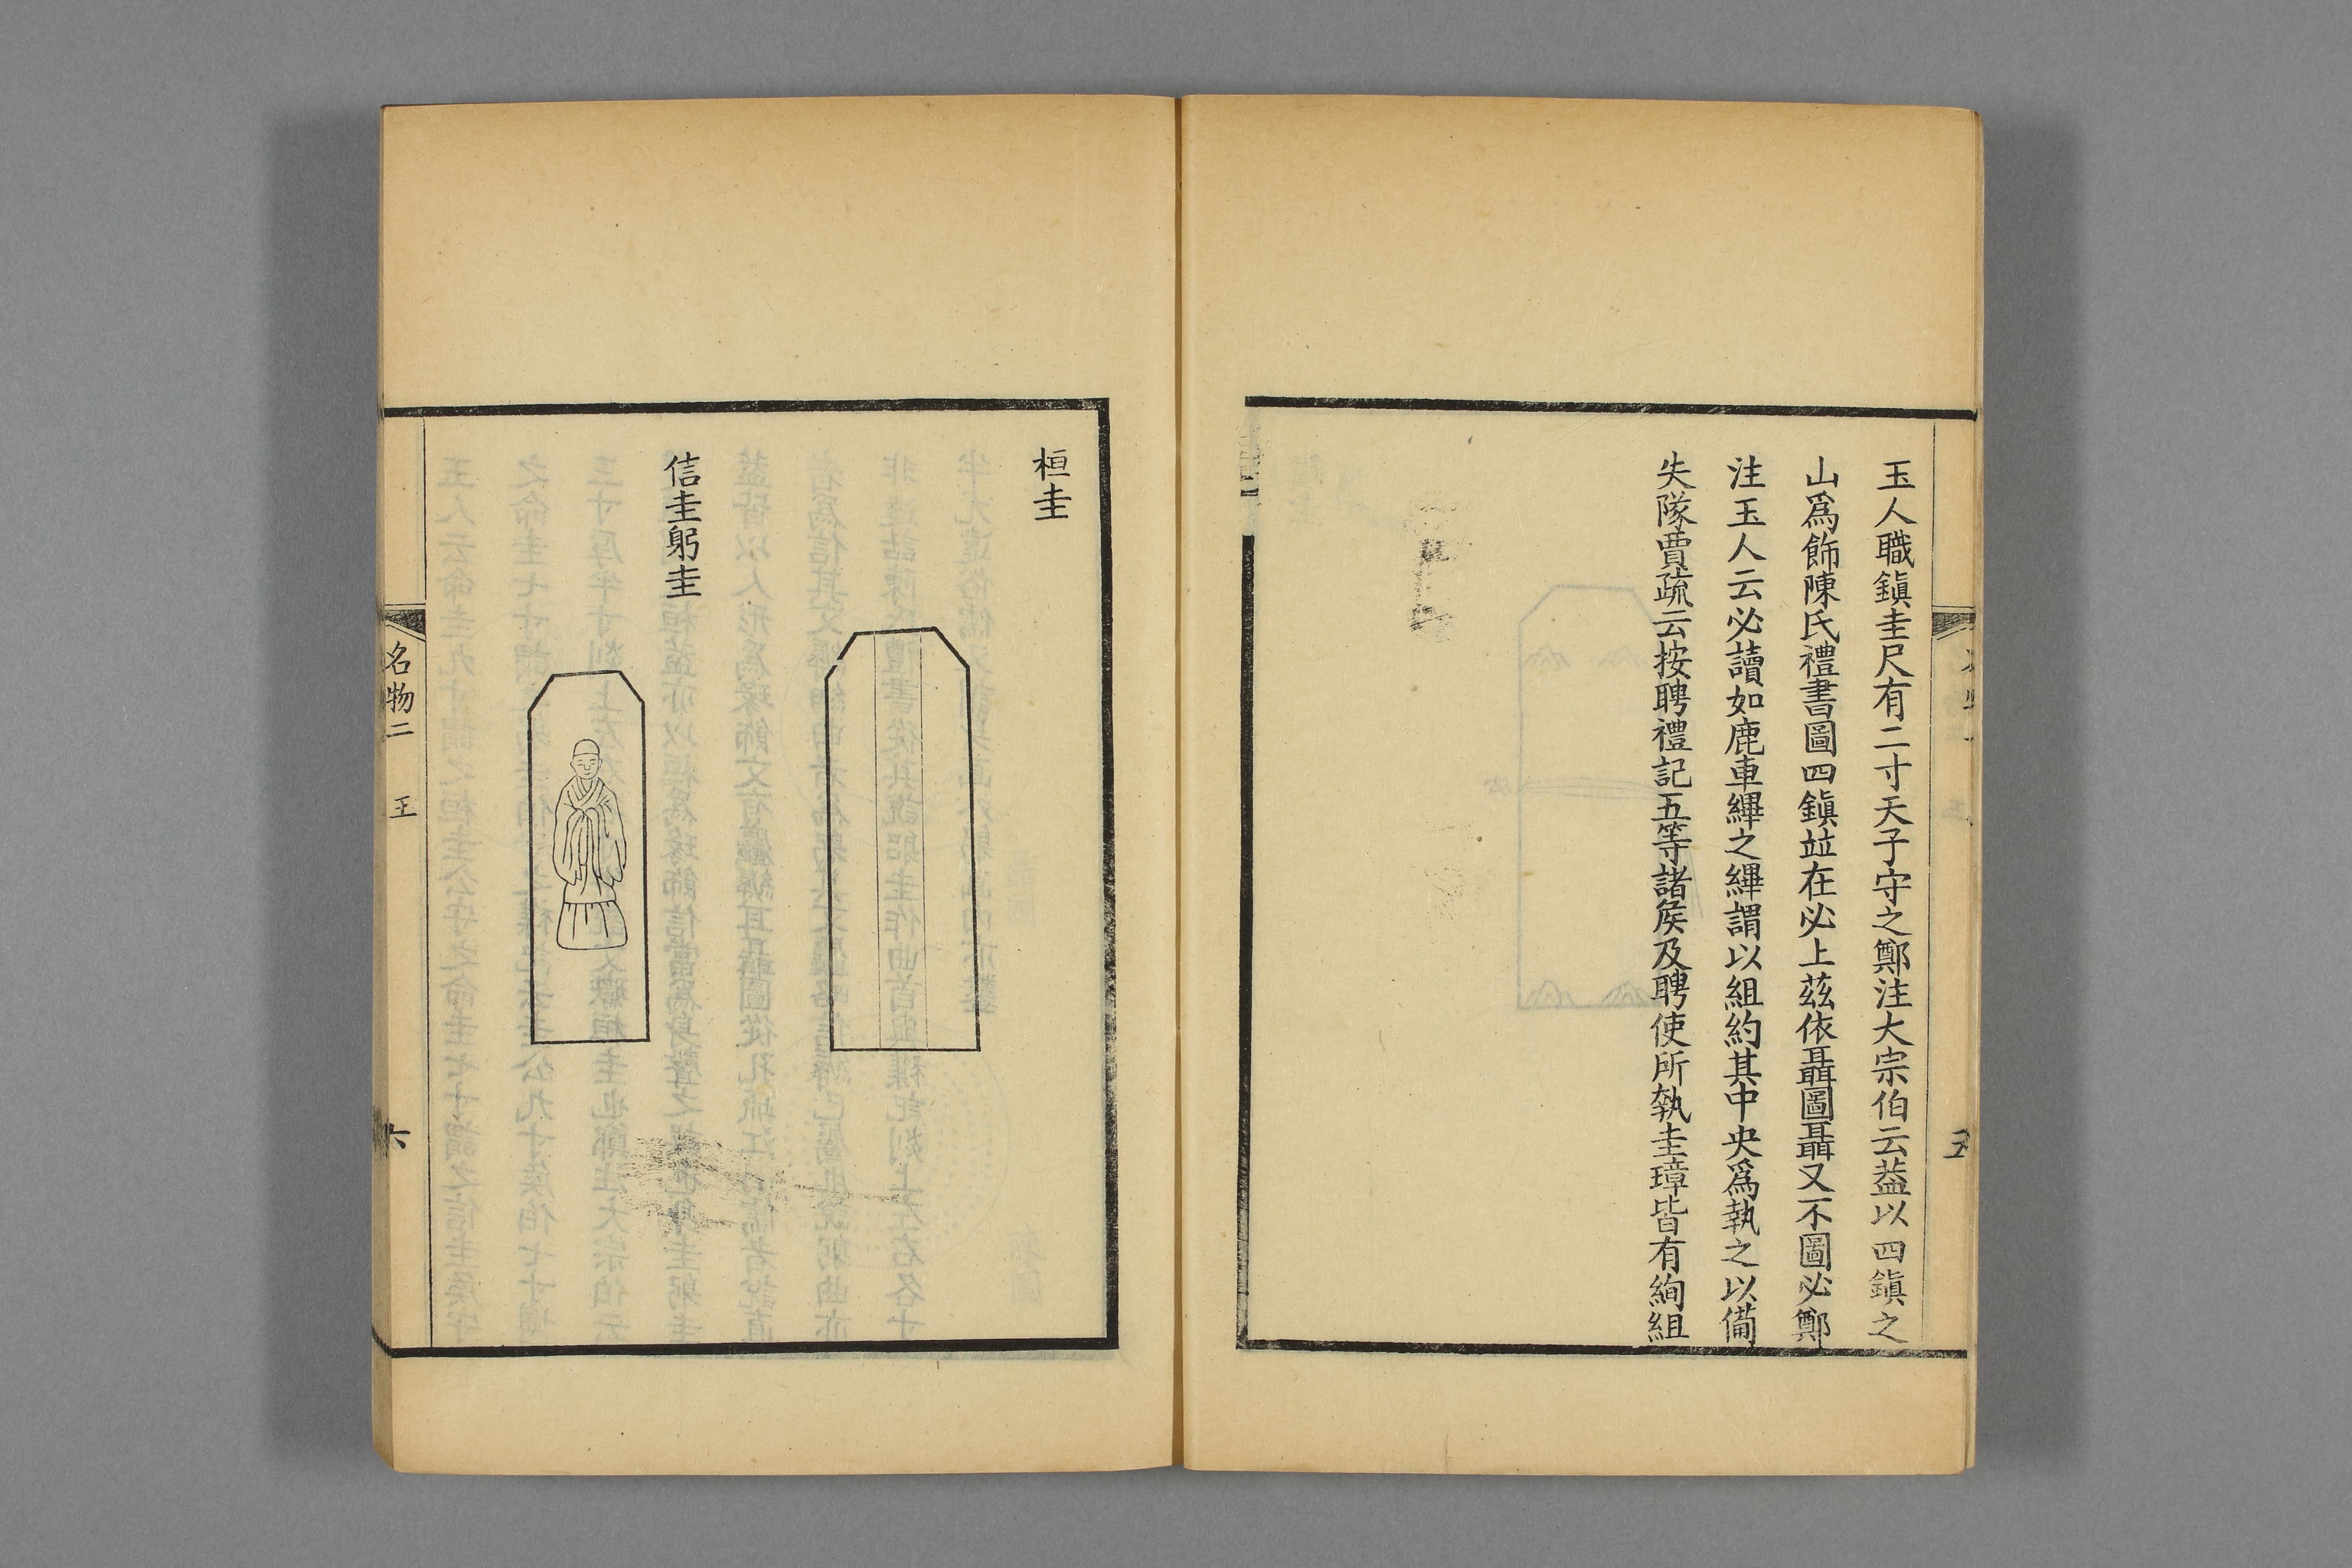 玉人職鎭圭尺有二寸天子守之鄭注大宗伯云葢以四鎭之
山爲飾陳氏禮書圖四鎭竝在必上茲依聶圖聶又不圖必鄭
注玉人云必讀如鹿車縪之縪謂以組約其中央爲執之以備
失隊賈疏云按聘禮記五等諸矦及聘使所執圭璋皆有絢組
五
桓圭
信圭躬圭
名物二
玉
六